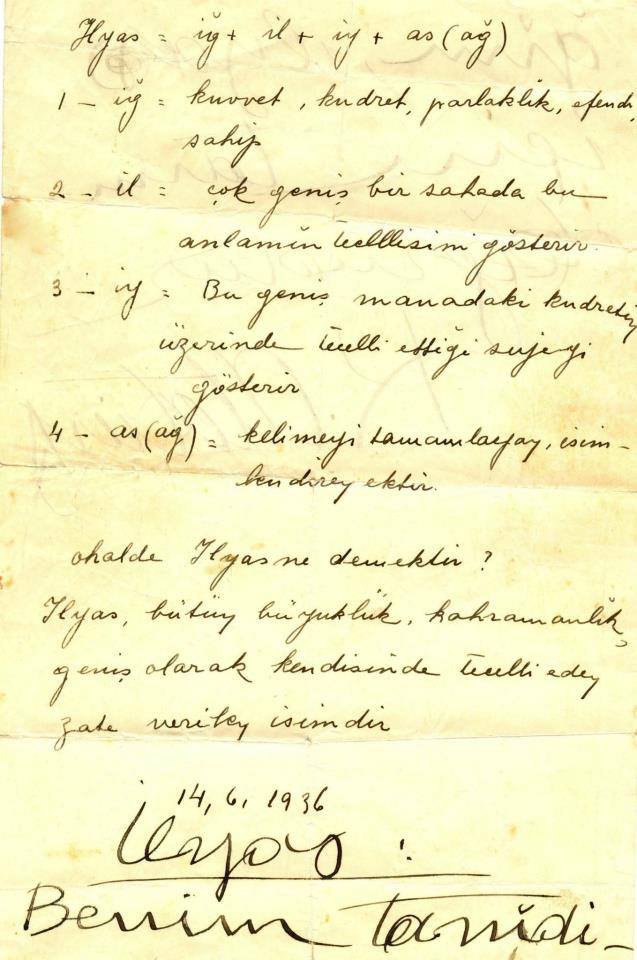 Ilyas = iğ + il + iy + as (ağ)
1 - iğ = kuvvet, kudret, parlaklık, efendi,
sahip
2 - il = çok geniş bir sahada bu
anlamın tecelllisini gösterir.
3 - iy = Bu geniş manadaki kudretin
üzerinde tecelli ettiği sujeyi
gösterir
4 - as (ağ) = kelimeyi tamamlayan, isim-
lendiren ektir.
ohalde Ilyas ne demektir?
Ilyas, bütün büyüklük, kahramanlık,
geniş olarak kendisinde tecelli eden
zate verilen isimdir
14, 6, 1936
İlyas :
Benim tanıdı-